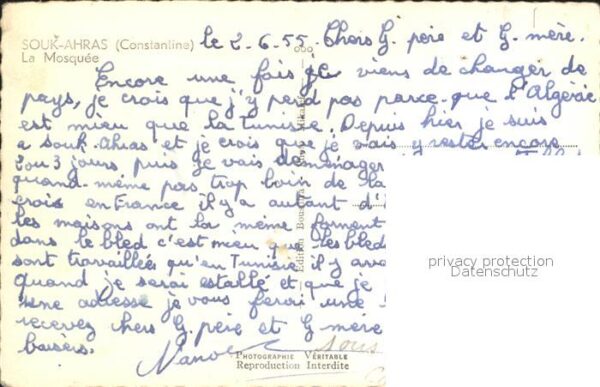 SOUK-AHRAS (Constantine) le 2-6-55. Chers G. père et G. mère.
La Mosquée
Encore une fois je viens de changer de
pays, je crois que j'y perd pas parce-que l'Algérie
est mieu que la Tunisie. Depuis hier je suis
a souk.Ahras et je crois que je vais y rester encore
2 ou 3 jours puis je vais déménager
quand-même pas trop loin de la
crois en France il y a autant d'
les maisons ont la même
dans le bled c'est mieu que les bled
sont travaillées qu'en Tunisie il y
quand je serai estallé et que je
une adresse je vous ferai une
recevez chers G. père et G mère
baisers.
sous
Edition
PHOTOGRAPHIE VÉRITABLE
Reproduction Interdite
privacy protection
Datenschutz